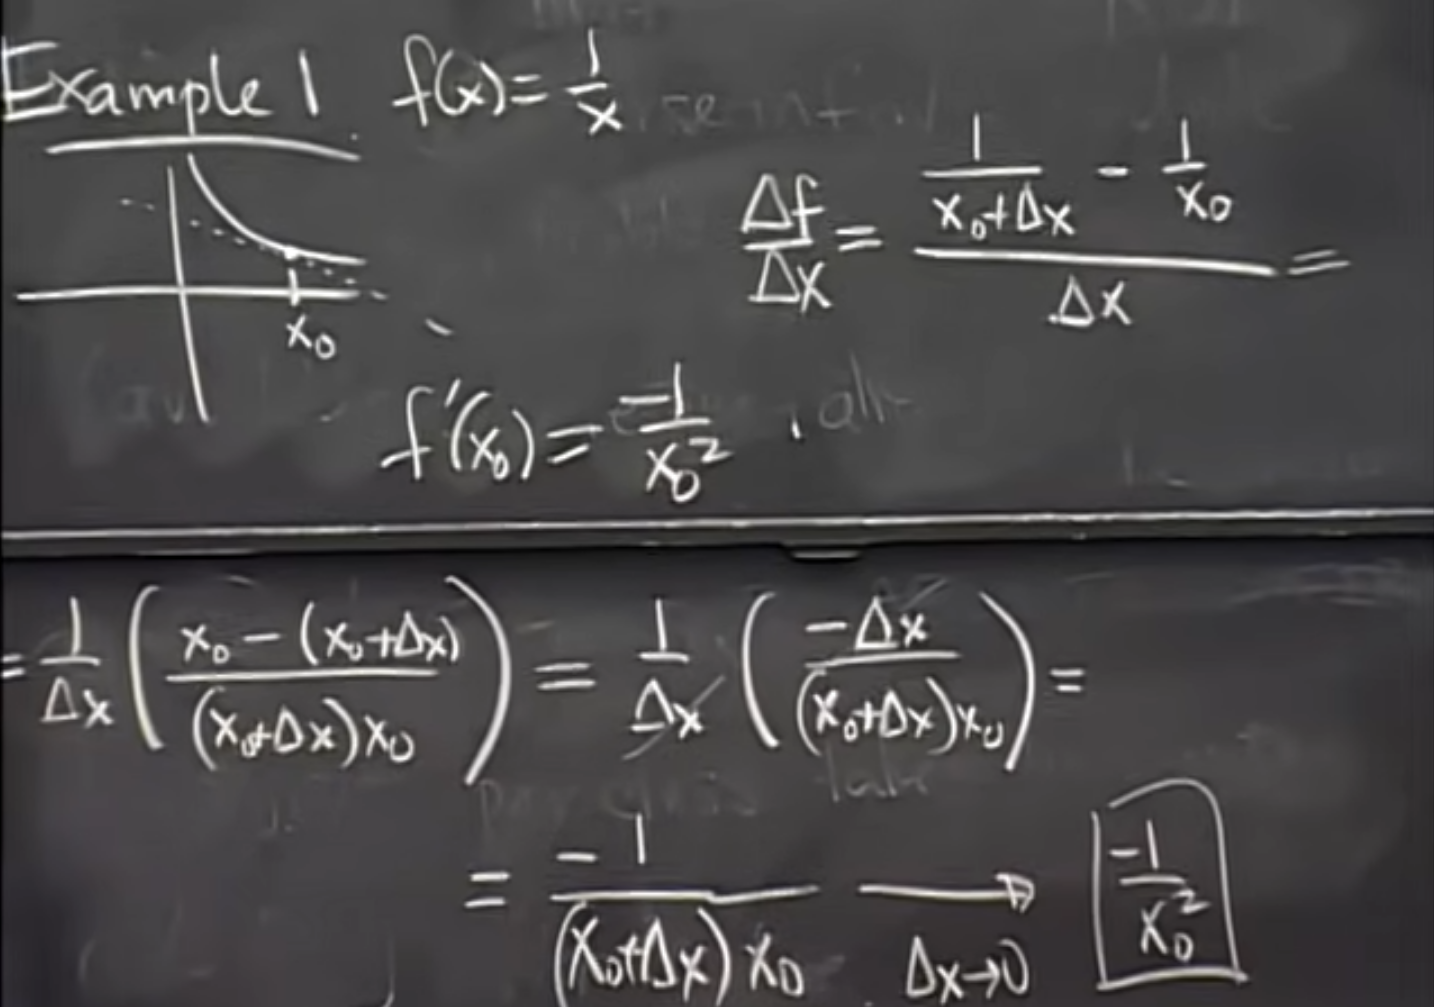 Example 1 f(x) = 1/x
Δf/Δx = (1/(x₀+Δx) - 1/x₀)/Δx =
x₀
f'(x₀) = -1/x₀²
= 1/Δx ( (x₀ - (x₀+Δx))/((x₀+Δx)x₀) ) = 1/Δx ( -Δx/((x₀+Δx)x₀) ) =
= -1/((x₀+Δx)x₀) ⟶ Δx→0 -1/x₀²